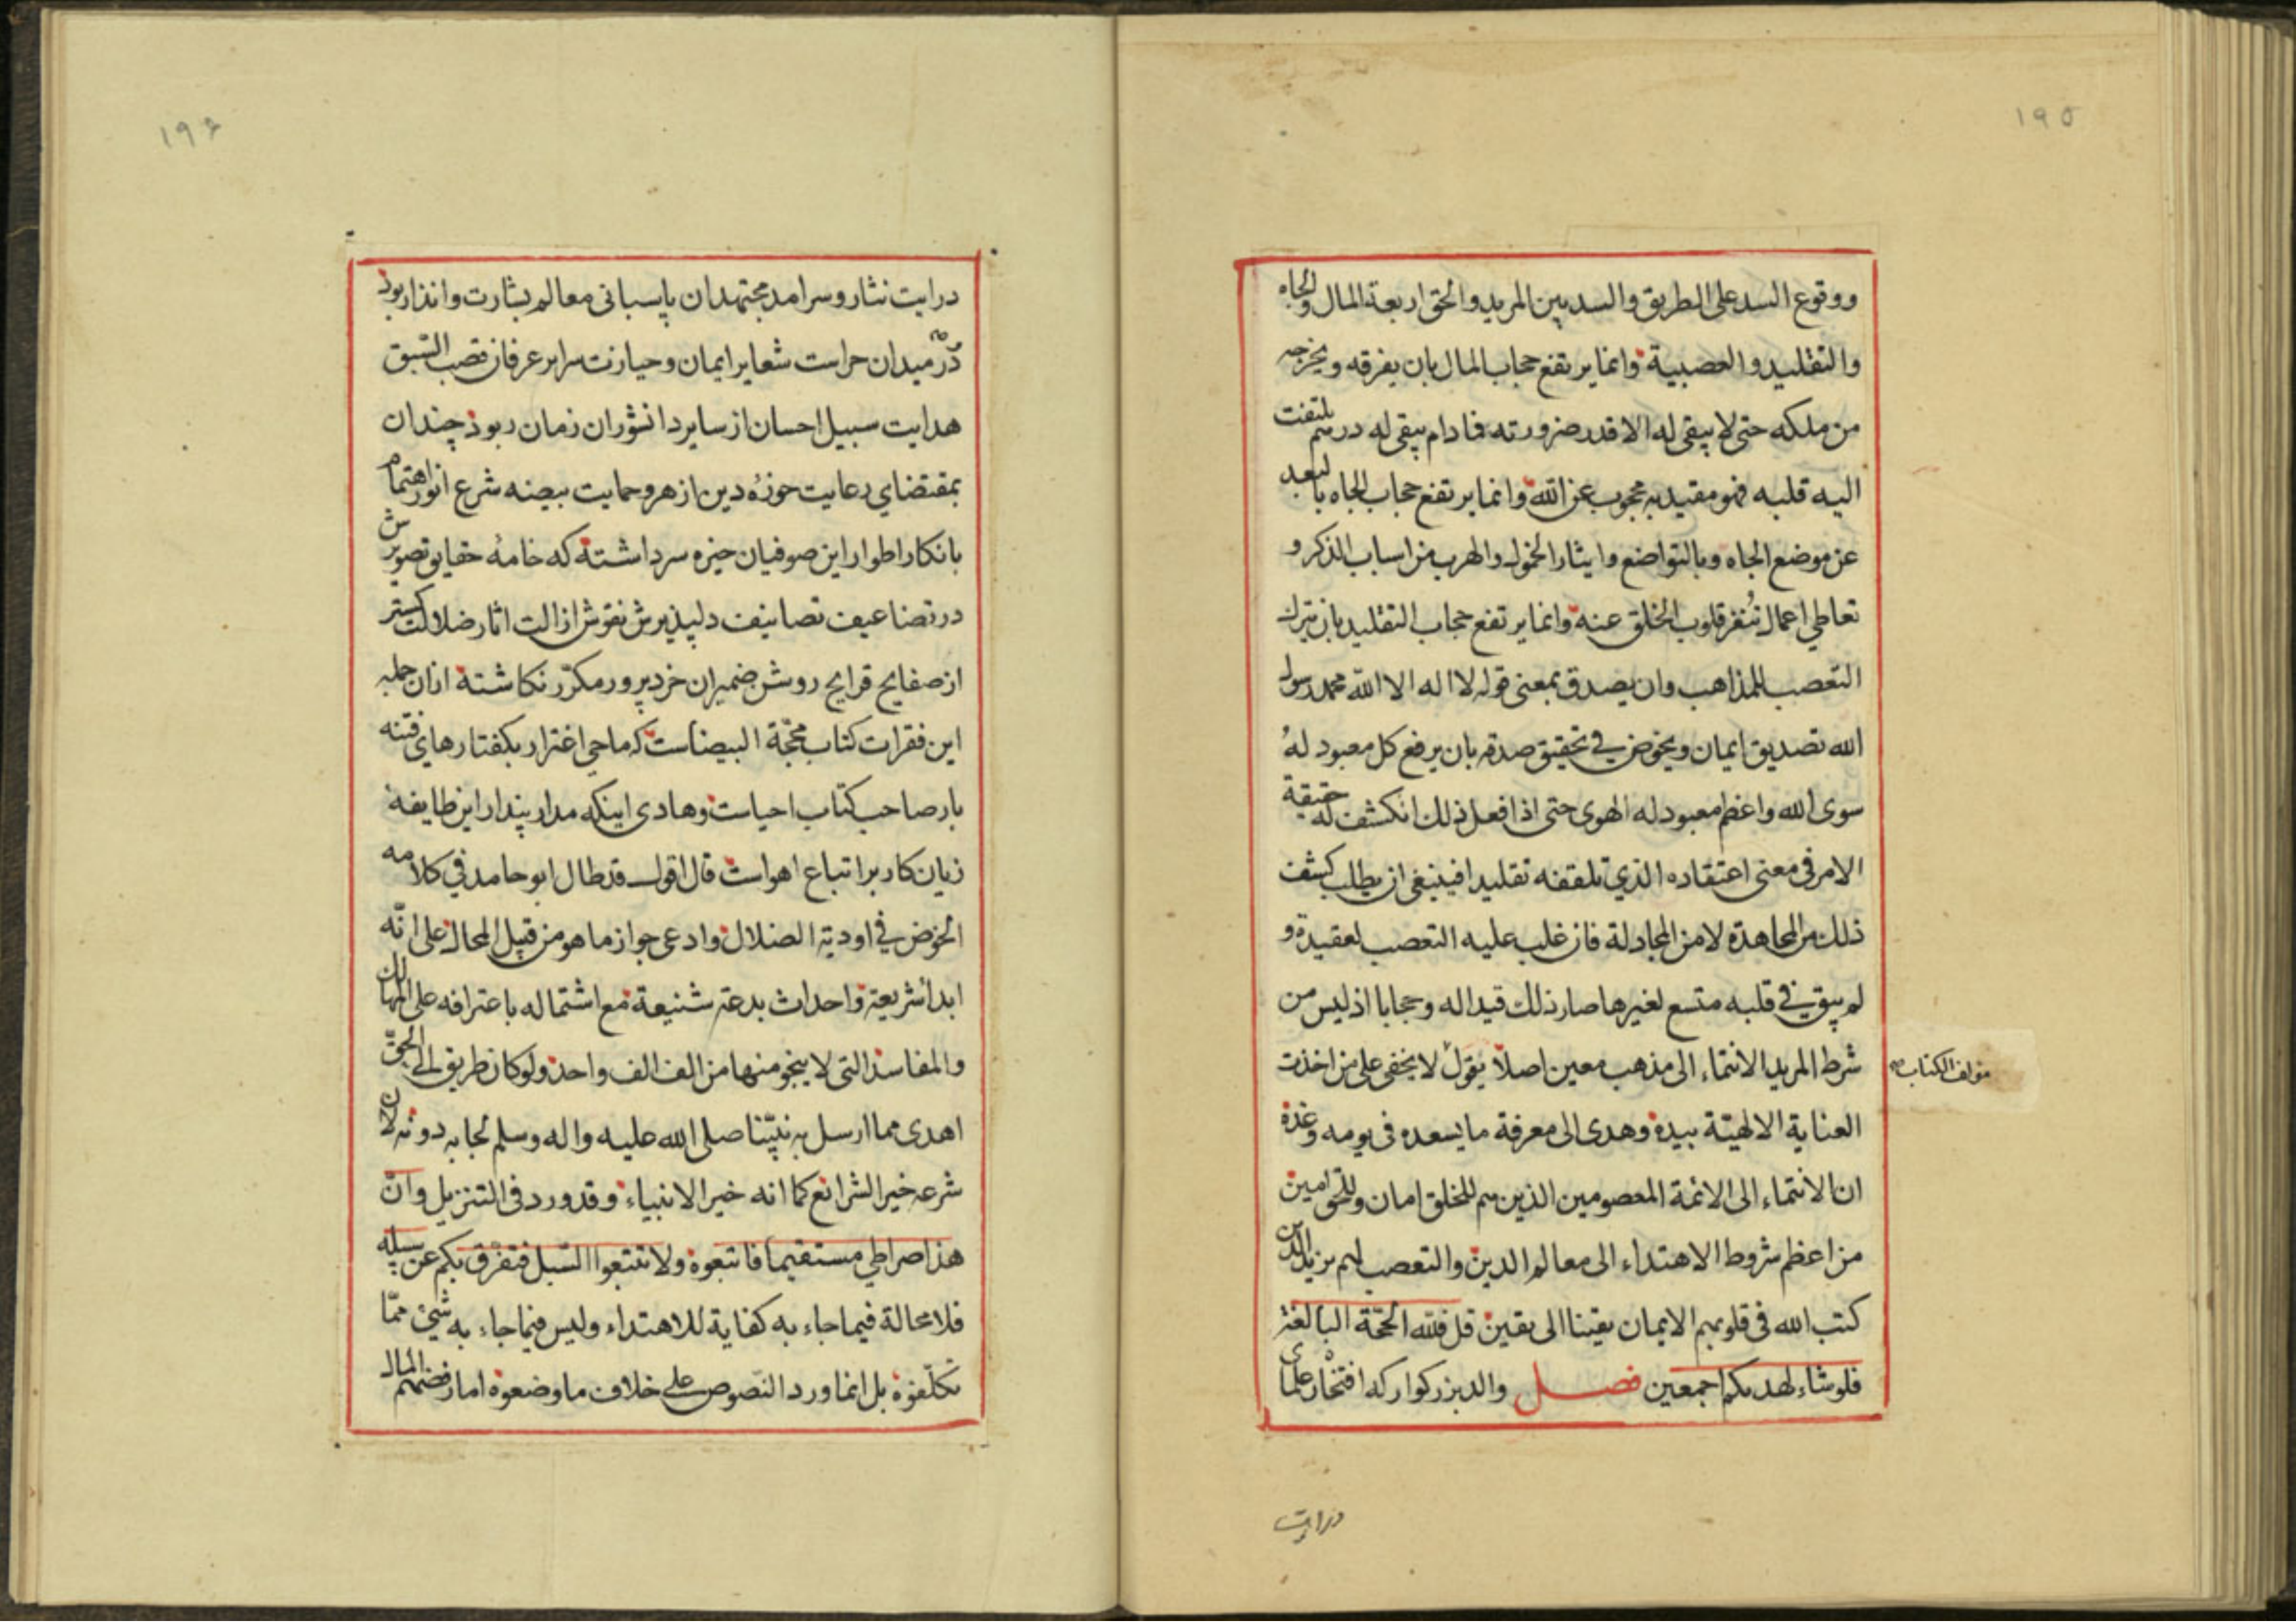 ١٩٥
ووقوع السد على الطريق والسد بين المريد والحق اربعة المال والجاه
والتقليد والعصبية وانما يرتفع حجاب المال بان يفرقه ويخرجه
من ملكه حتى لا يبقى له الا قدر ضرورته فما دام يبقى له درهم يلتفت
اليه قلبه فهو مقيد به محجوب عن الله وانما يرتفع حجاب الجاه بالبعد
عن موضع الجاه وبالتواضع وايثار الخمول والهرب من اسباب الذكر و
تعاطي اعمال تُنفر قلوب الخلق عنه وانما يرتفع حجاب التقليد بان يترك
التعصب للمذاهب وان يصدق بمعنى قوله لا اله الا الله محمد رسول
الله تصديق ايمان ويخوض في تحقيق صدقه بان يرفع كل معبود لهُ
سوى الله واعظم معبود له الهوى حتى اذا فعل ذلك انكشف له حقيقة
الامر في معنى اعتقاده الذي تلقفه تقليدا فينبغي ان يطلب كشف
ذلك من المجاهدة لا من المجادلة فان غلب عليه التعصب لعقيدة و
لم يبق في قلبه متسع لغيرها صار ذلك قيدا له وحجابا اذ ليس من
شرط المريد الانتماء الى مذهب معين اصلا يقول لا يخفى على من اخذت
مولف الكتاب
العناية الالهيّة بيده وهدى الى معرفة ما يسعده في يومه وغده
ان الانتماء الى الائمة المعصومين الذين هم للخلق امان وللحق امين
من اعظم شروط الاهتداء الى معالم الدين والتعصب لهم يزيد الذين
كتب الله في قلوبهم الايمان يقينا الى يقين قل فلله الحجّة البالغة
فلو شاء لهديكم اجمعين فصل والد بزركوار كه افتخار علماى
درايت
١٩۶
درايت نثار وسرامد مجتهدان پاسبانى معالم بشارت وانذار بود
در ميدان حراست شعاير ايمان وحيازت سراير عرفان قصب السّبق
هدايت سبيل احسان از ساير دانشوران زمان ربود چندان
بمقتضاي رعايت حوزهٔ دين ازهر وحمايت بيضه شرع انور اهتمام
بانكار اطوار اين صوفيان خيره سر داشته كه خامهٔ حقايق تصويرش
در تضاعيف تصانيف دلپذيرش نقوش ازالت اثار ضلالت كستر
از صفايح قرايح روشن ضميران خرد پرور مكرّر نكاشته ازان جمله
اين فقرات كتاب محجّة البيضاست كه ماحي اغترار بكفتارهاي فتنه
بار صاحب كتاب احياست وهادى اينكه مدار پندار اين طايفه
زيان كار بر اتباع اهواست قال اقول قد طال ابو حامد في كلامه
الخوض في اودية الضلال وادعى جواز ما هو من قبيل المحال على انّه
ابدأ شريعة واحداث بدعة شنيعة مع اشتماله باعترافه على المهالك
والمفاسد التى لا ينجو منها من الف الف واحد ولو كان طريق الى الحقّ
اهدى مما ارسل به نبيّنا صلى الله عليه واله وسلم لجا به دونه لان
شرعه خير الشرائع كما انه خير الانبياء وقد ورد في التنزيل وانّ
هذا صراطي مستقيما فاتبعوه ولا تتبعوا السّبل فتفرّق بكم عن سبيله
فلا محالة فيما جاء به كفاية للاهتداء وليس فيما جاء به شيئ ممّا
تكلّفوه بل انما ورد النّصوص على خلاف ما وضعوه اما رفضهم المال